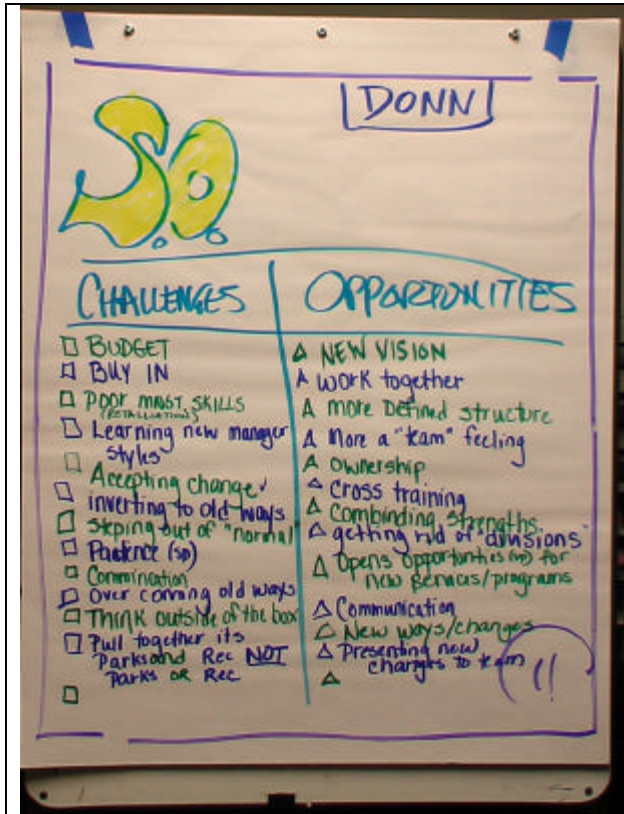 DONN
S.O.
CHALLENGES
BUDGET
BUY IN
POOR MNGT SKILLS
(RETALIATIONS)
Learning new manager
styles
Accepting change
inverting to old ways
Steping out of "normal"
Patience (sp)
Commination
Over coming old ways
Think outside of the box
Pull together its
Parks and Rec NOT
Parks OR Rec
OPPORTUNITIES
NEW VISION
work together
more Defined structure
More a "team" feeling
Ownership
Cross training
Combinding strengths
getting rid of "divisions"
Opens opportunties (sp) for
new services/programs
Communication
New ways/changes
Presenting new
changes to team